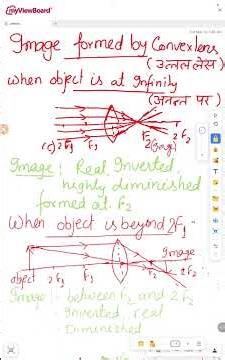 myViewBoard
Image formed by Convex lens
(उत्तल लेंस)
when object is at Infinity
(अनन्त पर)
(c) 2F₁ F₁ F₂ 2F₂
Image : Real, Inverted,
highly diminished
formed at F₂
When object is beyond 2F₁
Image
object 2F₁ F₁ F₂ 2F₂
Image : between F₂ and 2F₂
- Inverted, real
- Diminished